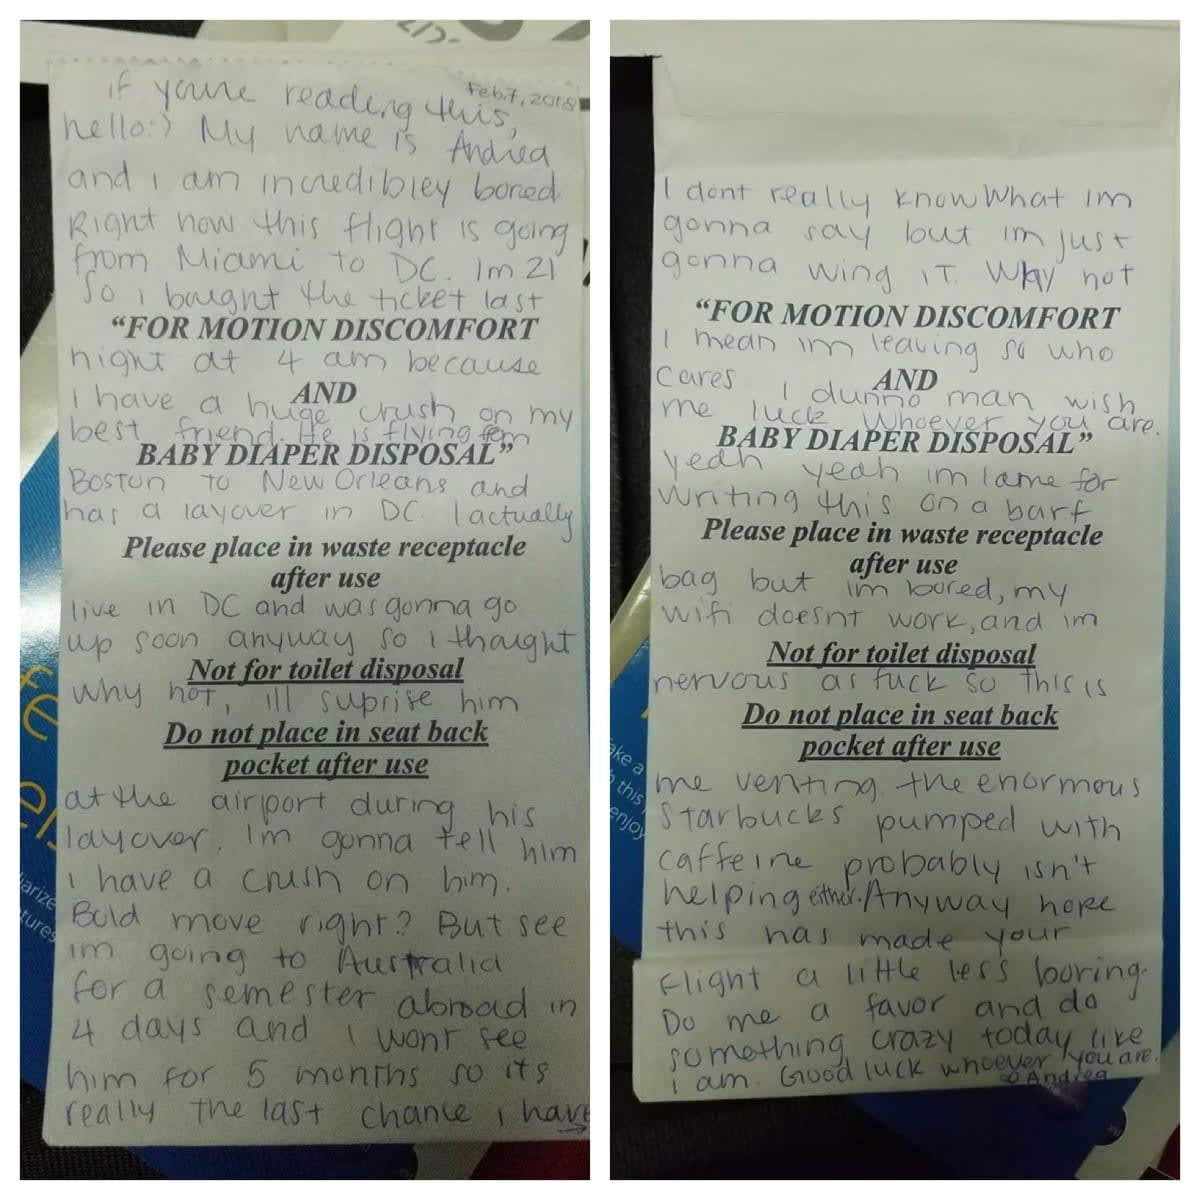 Feb.7, 2018
if youre reading this,
hello:) My name is Andrea
and i am incredibley bored
Right now this flight is going
from Miami to DC. Im 21
so i bought the ticket last
"FOR MOTION DISCOMFORT
night at 4 am because
AND
i have a huge crush on my
best friend. He is flying from
BABY DIAPER DISPOSAL"
Boston to New Orleans and
has a layover in DC. I actually
Please place in waste receptacle
after use
live in DC and was gonna go
up soon anyway so i thought
Not for toilet disposal
why not, ill suprise him
Do not place in seat back
pocket after use
at the airport during his
layover. Im gonna tell him
i have a crush on him.
Bold move right? But see
im going to Australia
for a semester abroad in
4 days and i wont see
him for 5 months so its
really the last chance i have
→
I dont really know What im
gonna say but im just
gonna wing iT. Why not
"FOR MOTION DISCOMFORT
I mean im leaving so who
cares I dunno man wish
AND
me luck Whoever you are.
BABY DIAPER DISPOSAL"
yeah yeah im lame for
writing this on a barf
Please place in waste receptacle
after use
bag but im bored, my
wifi doesnt work, and im
Not for toilet disposal
nervous as fuck so this is
Do not place in seat back
pocket after use
me venting. the enormous
Starbucks pumped with
caffeine probably isn't
helping either. Anyway hope
this has made your
flight a little less booring.
Do me a favor and do
something crazy today like
i am. Good luck whoever you are.
Andrea